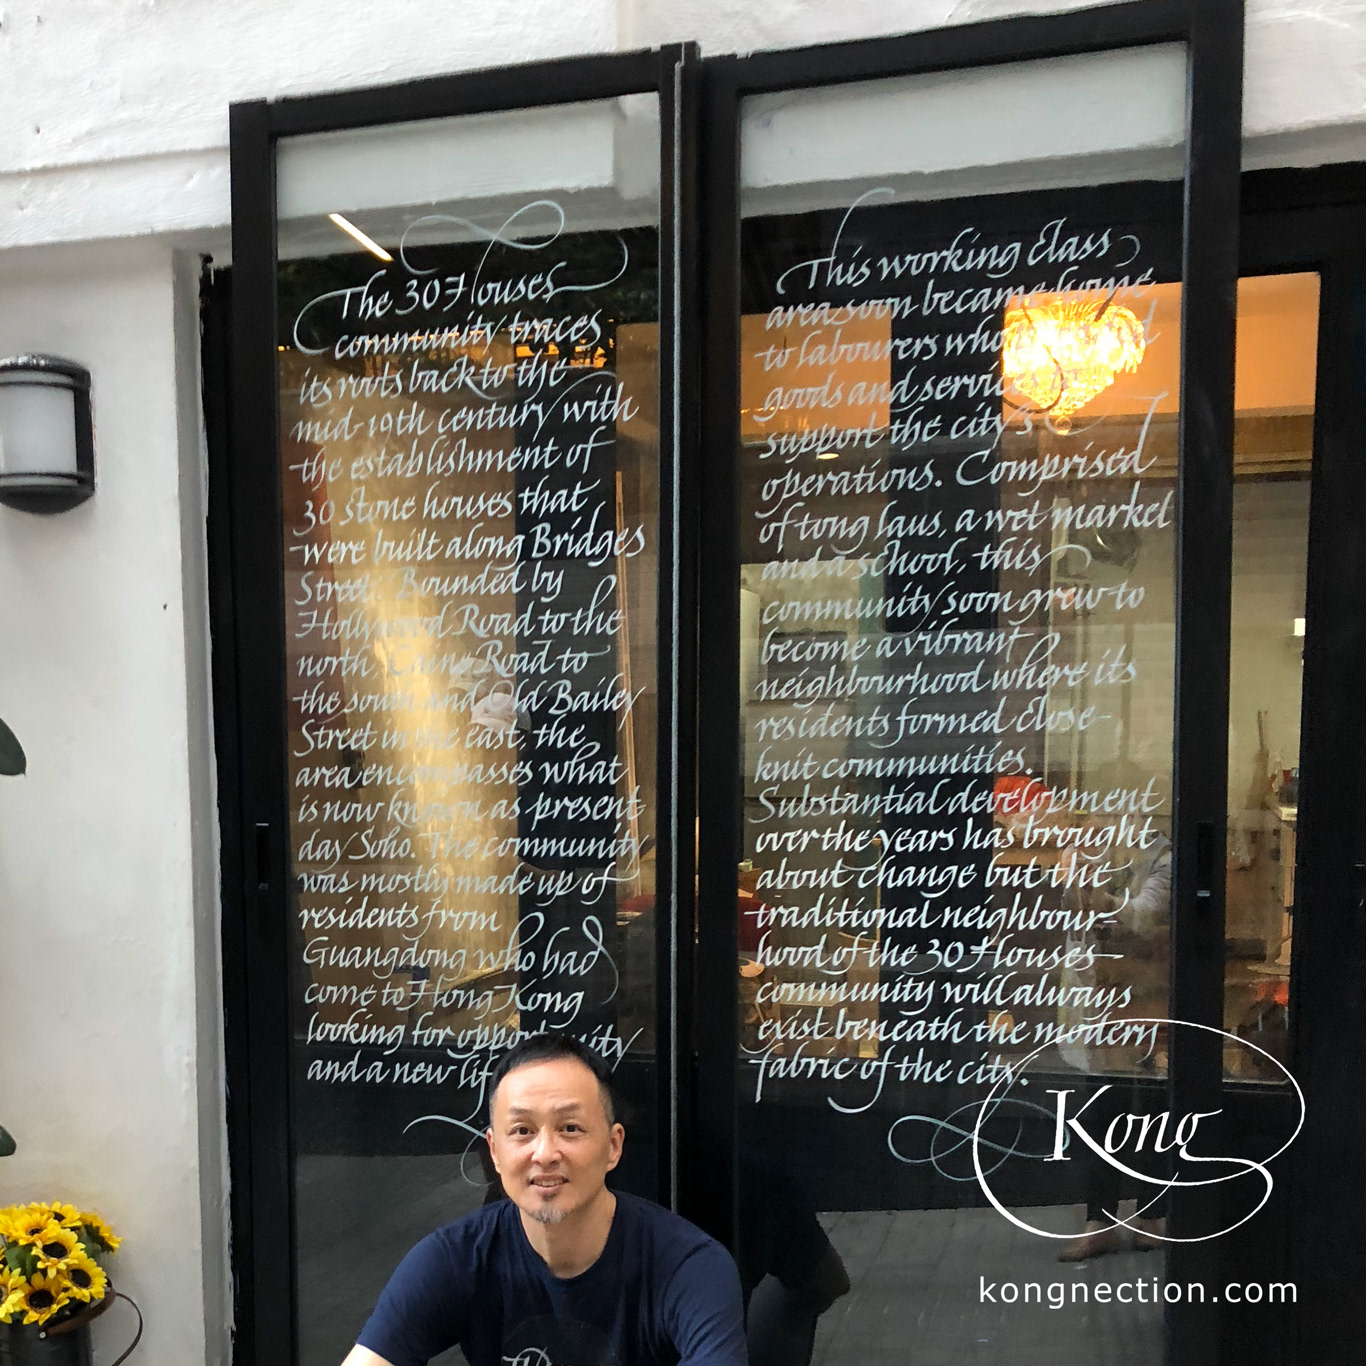 The 30 Houses
community traces
its roots back to the
mid-19th century with
the establishment of
30 stone houses that
were built along Bridges
Street. Bounded by
Hollywood Road to the
north, Caine Road to
the south and Old Bailey
Street in the east, the
area encompasses what
is now known as present
day Soho. The community
was mostly made up of
residents from
Guangdong who had
come to Hong Kong
looking for opportunity
and a new
This working class
area soon became home
to labourers who
goods and
support the city's
operations. Comprised
of tong laus, a wet market
and a school, this
community soon grew to
become a vibrant
neighbourhood where its
residents formed close-
knit communities.
Substantial development
over the years has brought
about change but the
traditional neighbour-
hood of the 30 Houses
community will always
exist beneath the modern
fabric of the city.
Kong
kongnection.com